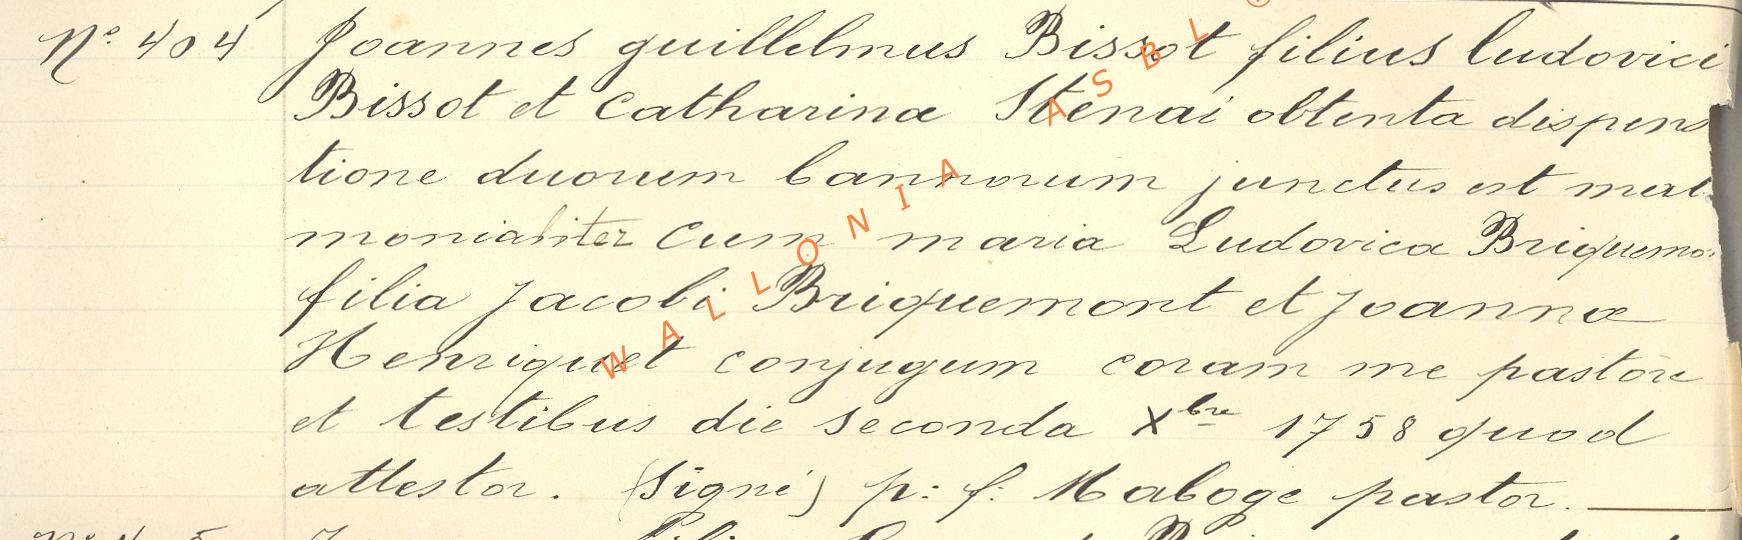 N° 404 Joannes guillelmus Bissot filius ludovici
Bissot et Catharinæ Stenai obtenta dispens
tione duorum bannorum junctus est mat
monialiter cum maria Ludovica Briquemo
filia Jacobi Briquemont et Joannæ
Henriquet conjugum coram me pastore
et testibus die seconda Xbre 1758 quod
attestor. (Signé) p: f: Maboge pastor.
WALLONIA ASBL